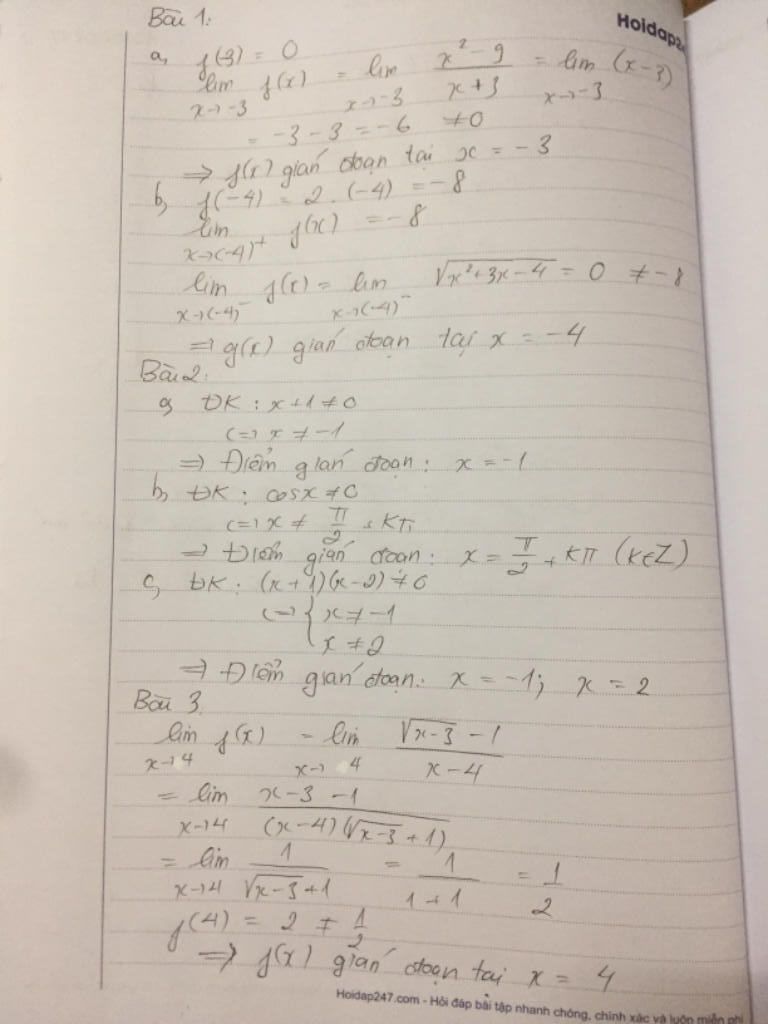 Hoidap24
Bài 1:
a, f(3) = 0
lim f(x) = lim x² - 9 / x + 3 = lim (x - 3)
x→-3 x→-3 x→-3
= -3 - 3 = -6 ≠ 0
⇒ f(x) gián đoạn tại x = -3
b, f(-4) = 2 . (-4) = -8
lim f(x) = -8
x→(-4)⁺
lim f(x) = lim √(x² + 3x - 4) = 0 ≠ -8
x→(-4)⁻ x→(-4)⁻
⇒ g(x) gián đoạn tại x = -4
Bài 2:
a, ĐK : x + 1 ≠ 0
<=> x ≠ -1
⇒ Điểm gián đoạn : x = -1
b, ĐK : cosx ≠ 0
<=> x ≠ π/2 + kπ
⇒ Điểm gián đoạn : x = π/2 + kπ (k∈Z)
c, ĐK : (x + 1)(x - 2) ≠ 0
<=> { x ≠ -1
x ≠ 2
⇒ Điểm gián đoạn : x = -1; x = 2
Bài 3
lim f(x) = lim √(x-3) - 1 / x - 4
x→4 x→4
= lim x - 3 - 1 / (x-4)(√(x-3) + 1)
x→4
= lim 1 / √(x-3) + 1 = 1 / 1 + 1 = 1/2
x→4
f(4) = 2 ≠ 1/2
⇒ f(x) gián đoạn tại x = 4
Hoidap247.com - Hỏi đáp bài tập nhanh chóng, chính xác và luôn miễn phí